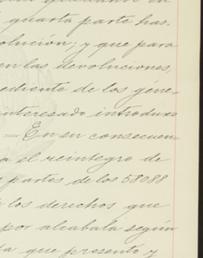 quarta parte has-
olucion; y que para
en las devoluciones,
ediente de los gene-
interesado introduxo
— En su consecuen-
a el reintegro de
partes de los 58088
los derechos que
por alcabala según
ta que presento y